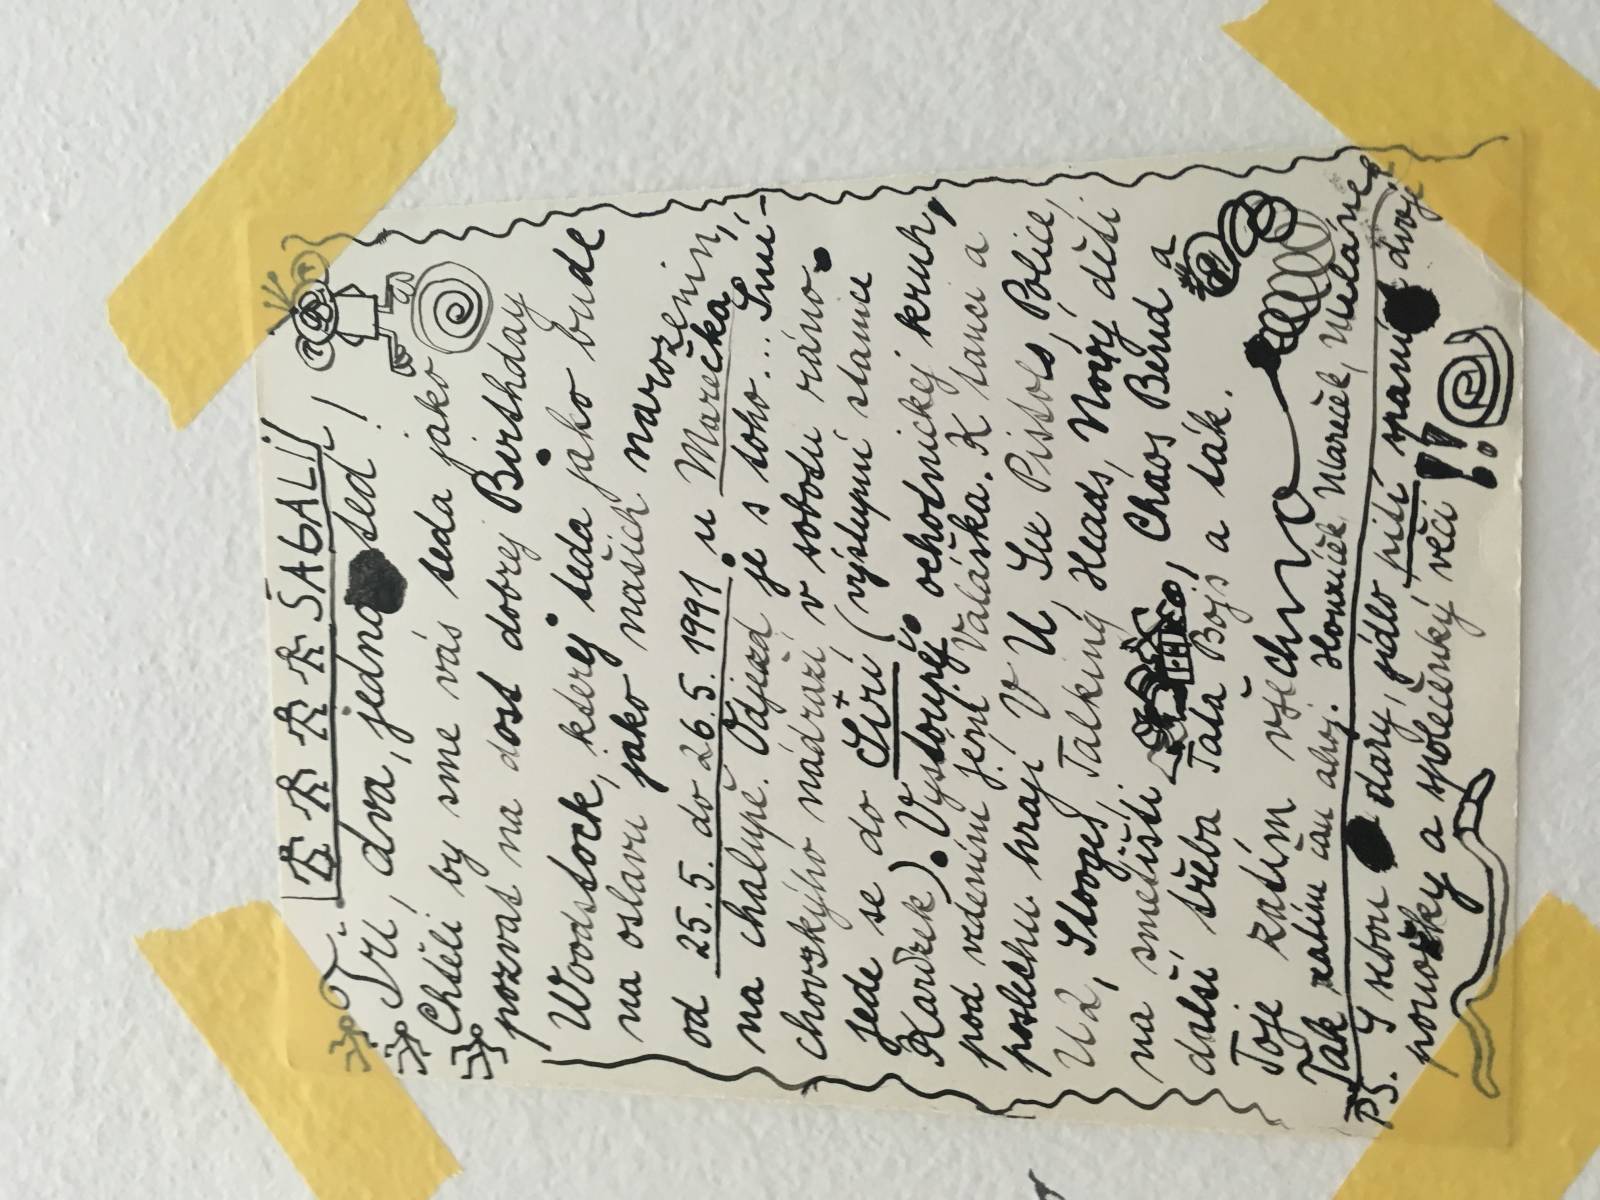 ŠAGALI!
Tri, dva, jedna teď!
Chtěli by sme vás teda jako
pozvat na dost dobrej Birthday
Woodstock, kterej teda jako bude
na oslavu jako našich narozenin,
od 25.5. do 26.5. 1991 u Marečka
na chalupě. Odjezd je s toho... Smí-
chovskýho nádraží v sobotu ráno.
jede se do Siré (výstupní stanice
). Vystoupej ochotnickej kruh,
pod vedením jení Valáška. K tanci a
poslechu hrají V U, Sex Pistols, Police,
U2, Stooges, Talking Heads, Nový děti
na smetišti, Chaos Bend a
další třeba Tata Bojs a ták.
Toje zatím všechno
Tak zatím čau ahoj. Honzíček, Mareček,
PS. S sebou dary, jídlo, pití, spaní dvoj
ponožky a společenský věci!!